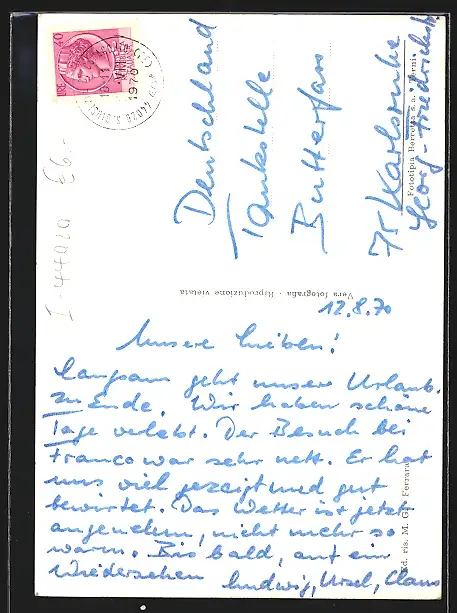 12.8.70
Unsere Lieben!
langsam geht unsere Urlaub.
zu Ende. Wir haben schöne
Tage verlebt. Der Besuch bei
Franco war sehr nett. Er hat
uns viel gezeigt und gut
bewirtet. Das Wetter ist jetzt
angenehm, nicht mehr so
warm. Bis bald, auf ein
Wiedersehen
Ludwig, Ursel, Claus
Deutschland
Tankstelle
Butterfass
75 Karlsruhe
Georg-Friedrichstr
Vera fotografia - Riproduzione vietata
Fototipia Berretta s.a. Terni
Ed. ris. M. G. Ferrara
I-44020 E6.-
1970
44020